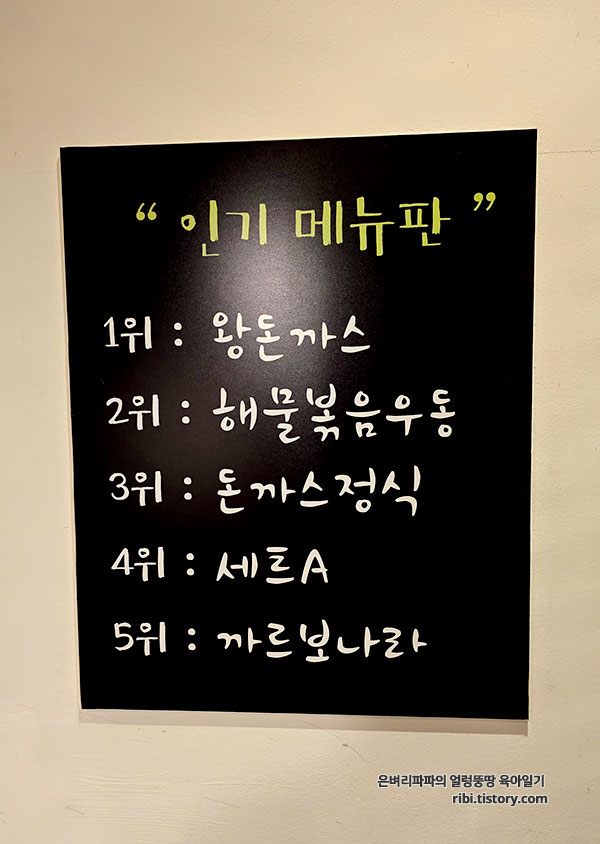 “ 인기 메뉴판 ”
1위 : 왕돈까스
2위 : 해물볶음우동
3위 : 돈까스정식
4위 : 세트A
5위 : 까르보나라
은벼리파파의 얼렁뚱땅 육아일기
ribi.tistory.com